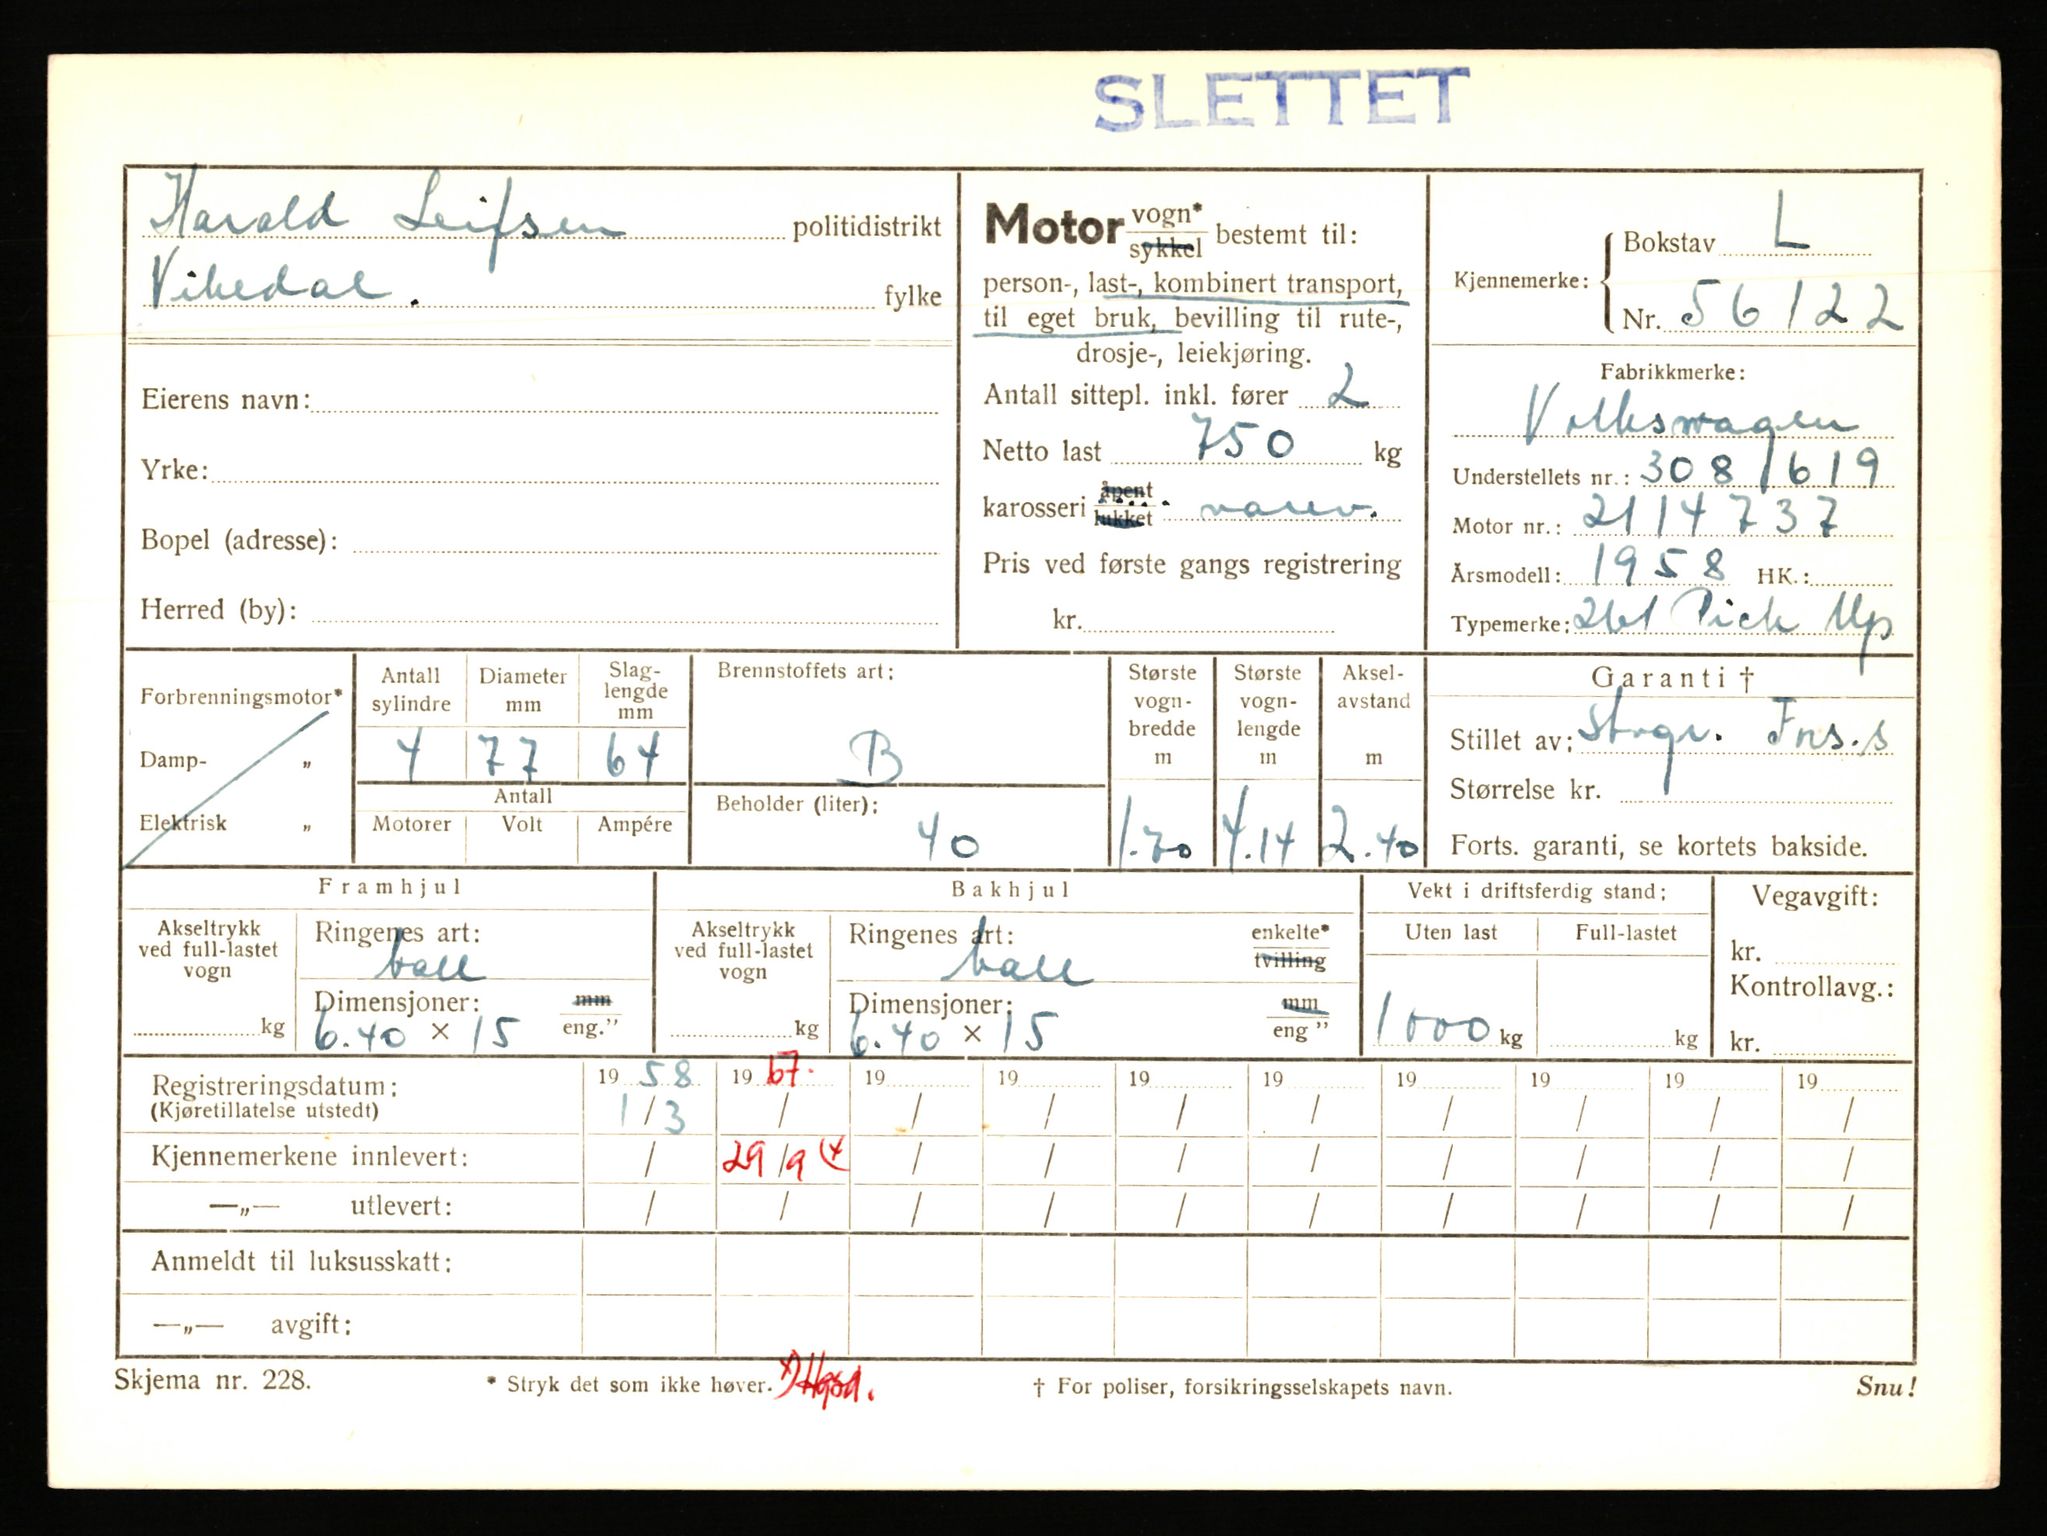 SLETTET
Harald Leifsen politidistrikt
Vikedal. fylke
Eierens navn:
Yrke:
Bopel (adresse):
Herred (by):
Motor vogn* sykkel bestemt til:
person-, last-, kombinert transport,
til eget bruk, bevilling til rute-,
drosje-, leiekjøring.
Antall sittepl. inkl. fører 2
Netto last 750 kg
karosseri åpent lukket varev.
Pris ved første gangs registrering
kr.
Kjennemerke: Bokstav L
Nr. 56122
Fabrikkmerke:
Volkswagen
Understellets nr.: 308/619
Motor nr.: 2114737
Årsmodell: 1958 HK.:
Typemerke: 261 Pick Up
Forbrenningsmotor*
Damp- „
Elektrisk „
Antall sylindre 4
Diameter mm 77
Slag-lengde mm 64
Antall
Motorer Volt Ampére
Brennstoffets art:
B
Beholder (liter):
40
Største vogn-bredde m 1.70
Største vogn-lengde m 4.14
Aksel-avstand m 2.40
Garanti †
Stillet av: Fors.s
Størrelse kr.
Forts. garanti, se kortets bakside.
Framhjul
Akseltrykk ved full-lastet vogn
kg
Ringenes art:
ball
Dimensjoner: mm
6.40 × 15 eng.”
Bakhjul
Akseltrykk ved full-lastet vogn
kg
Ringenes art: enkelte*
ball tvilling
Dimensjoner: mm
6.40 × 15 eng ”
Vekt i driftsferdig stand:
Uten last Full-lastet
1000 kg kg
Vegavgift:
kr.
Kontrollavg.:
kr.
Registreringsdatum: 19 58 19 67. 19 19 19 19 19 19 19 19
(Kjøretillatelse utstedt) 1/3 / / / / / / / / /
Kjennemerkene innlevert: / 29/9 / / / / / / / /
—„— utlevert: / / / / / / / / / /
Anmeldt til luksusskatt:
—„— avgift:
Skjema nr. 228. * Stryk det som ikke høver. † For poliser, forsikringsselskapets navn. Snu!